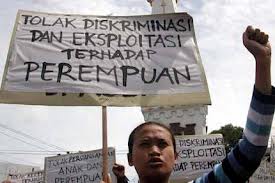 TOLAK DISKRIMINASI
DAN EKSPLOITASI
TERHADAP
PEREMPUAN
TOLAK
ANAK DAN
PEREMPUAN
DISKRIMINASI
EKSPLOITASI